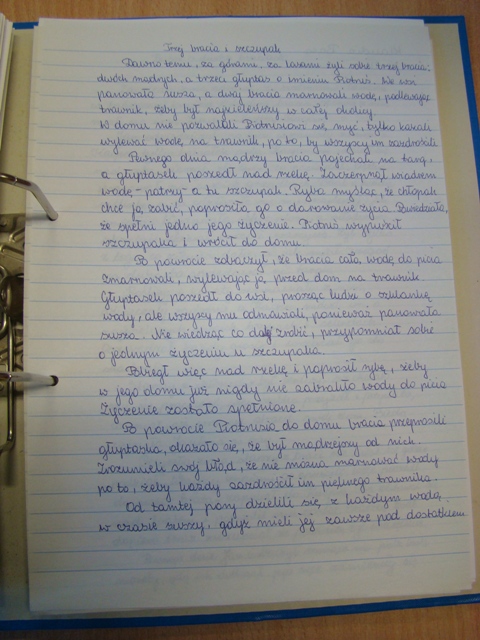 Trzej bracia i szczupak
Dawno temu, za górami, za lasami żyli sobie trzej bracia:
dwóch mądrych, a trzeci głuptas o imieniu Piotruś. We wsi
panowała susza, a dwaj bracia marnowali wodę, podlewając
trawnik, żeby był najzieleńszy w całej okolicy.
W domu nie pozwalali Piotrusiowi się myć, tylko kazali
wylewać wodę na trawnik, po to, by wszyscy im zazdrościli.
Pewnego dnia mądrzy bracia pojechali na targ,
a głuptasek poszedł nad rzekę. Zaczerpnął wiadrem
wodę - patrzy - a tu szczupak. Ryba myśląc, że chłopak
chce ją zabić, poprosiła go o darowanie życia. Powiedziała,
że spełni jedno jego życzenie. Piotruś wypuścił
szczupaka i wrócił do domu.
Po powrocie zobaczył, że bracia całą wodę do picia
zmarnowali, wylewając ją przed dom na trawnik.
Głuptasek poszedł do wsi, prosząc ludzi o szklankę
wody, ale wszyscy mu odmawiali, ponieważ panowała
susza. Nie wiedząc co dalej zrobić, przypomniał sobie
o jednym życzeniu u szczupaka.
Pobiegł więc nad rzekę i poprosił rybę, żeby
w jego domu już nigdy nie zabrakło wody do picia
Życzenie zostało spełnione.
Po powrocie Piotrusia do domu bracia przeprosili
głuptaska, okazało się, że był mądrzejszy od nich.
Zrozumieli swój błąd, że nie można marnować wody
po to, żeby każdy zazdrościł im pięknego trawnika.
Od tamtej pory dzielili się z każdym wodą,
w czasie suszy, gdyż mieli jej zawsze pod dostatkiem